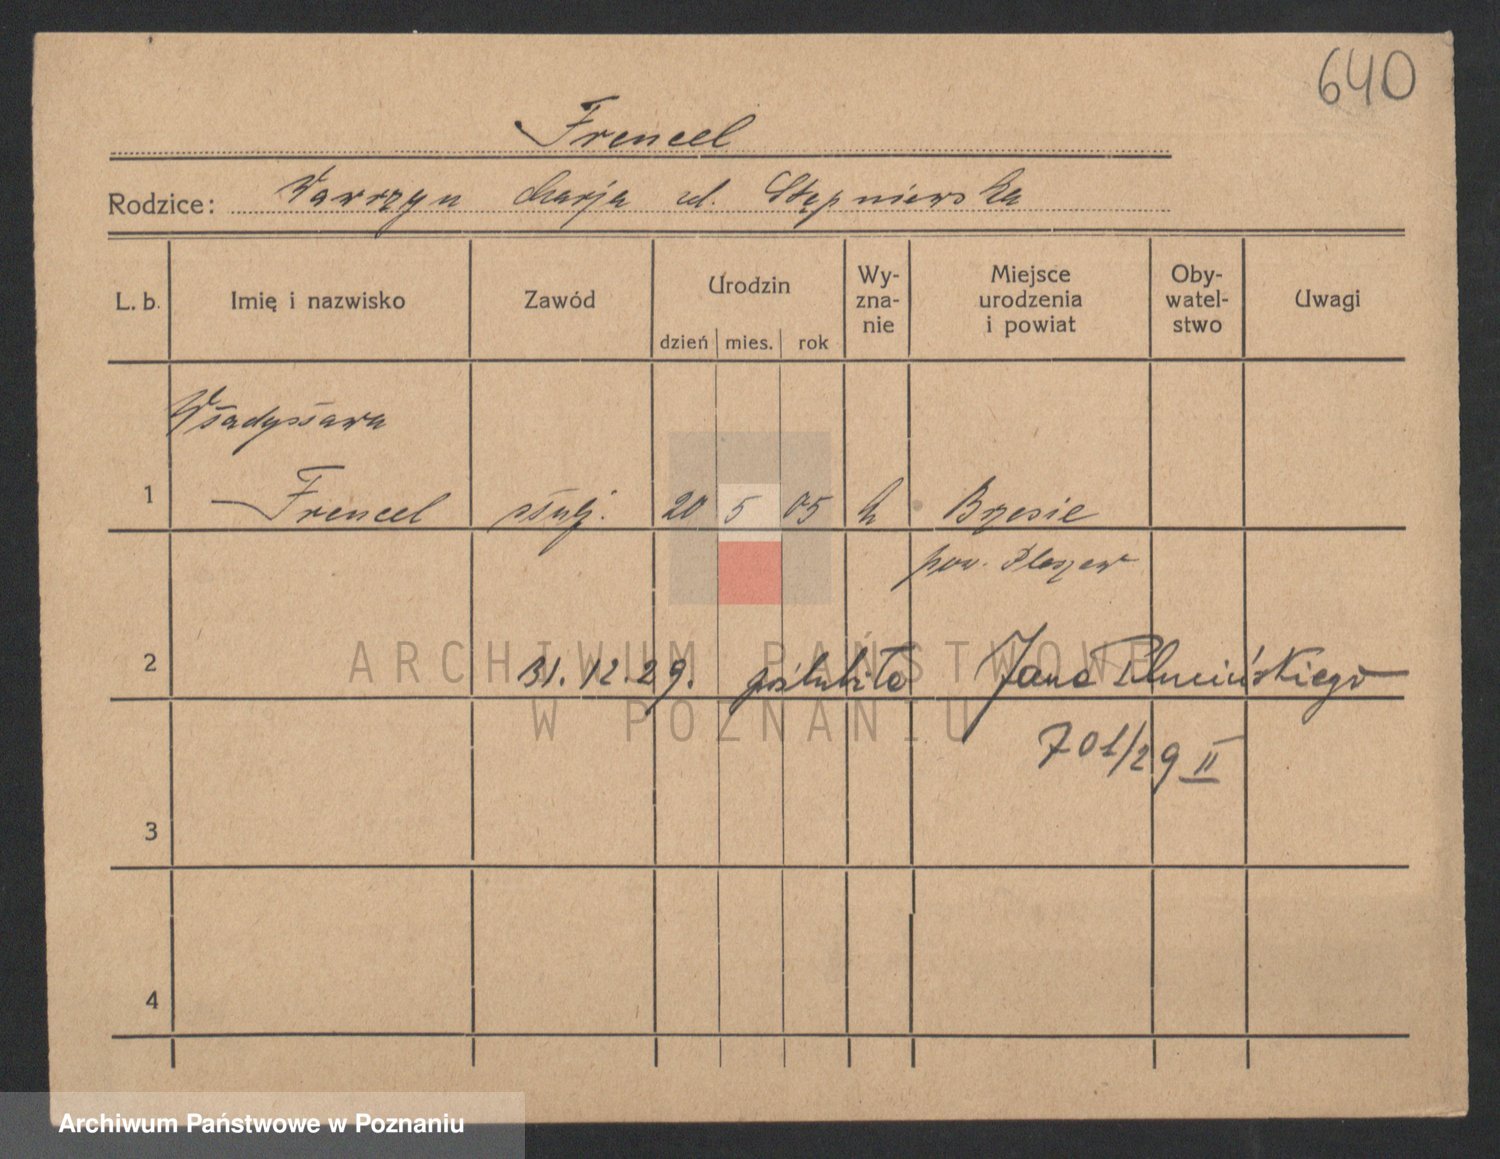 640
Frencel
Rodzice: Wawrzyn Marja ul. Stępniewska
L. b.
Imię i nazwisko
Zawód
Urodzin
dzień mies. rok
Wy-
zna-
nie
Miejsce
urodzenia
i powiat
Oby-
watel-
stwo
Uwagi
Władysława
1 Frencel służ. 20 5 05 k Brzezie
pow. Pleszew
2 31.12.29. poślubiła Jana Plucińskiego
701/29 II
3
4
ARCHIWUM PAŃSTWOWE
W POZNANIU
Archiwum Państwowe w Poznaniu